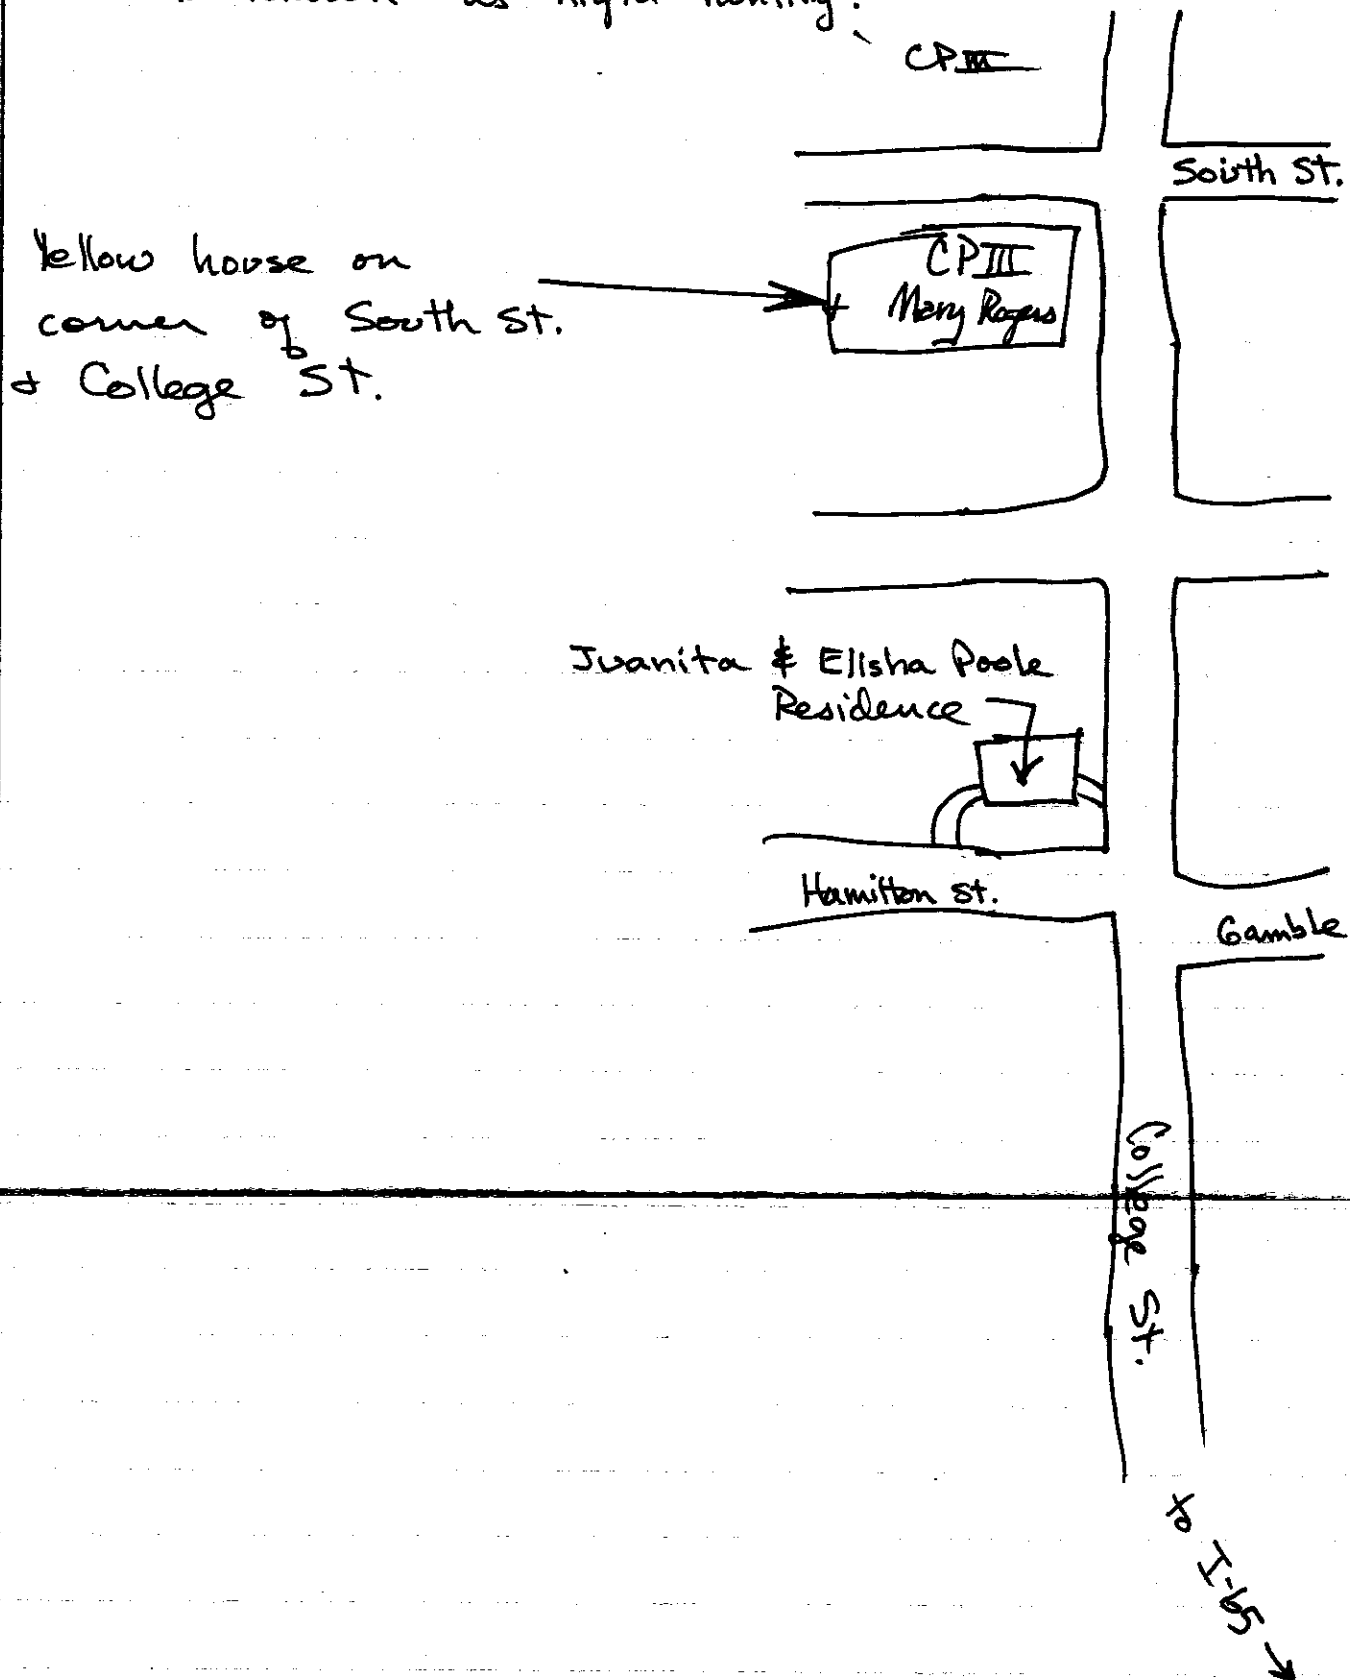 as night
CPIII
South St.
Yellow house on
corner of South St.
& College St.
CPIII
Mary Rogers
Juanita & Elisha Poole
Residence
Hamilton St.
Gamble
College St.
to I-65